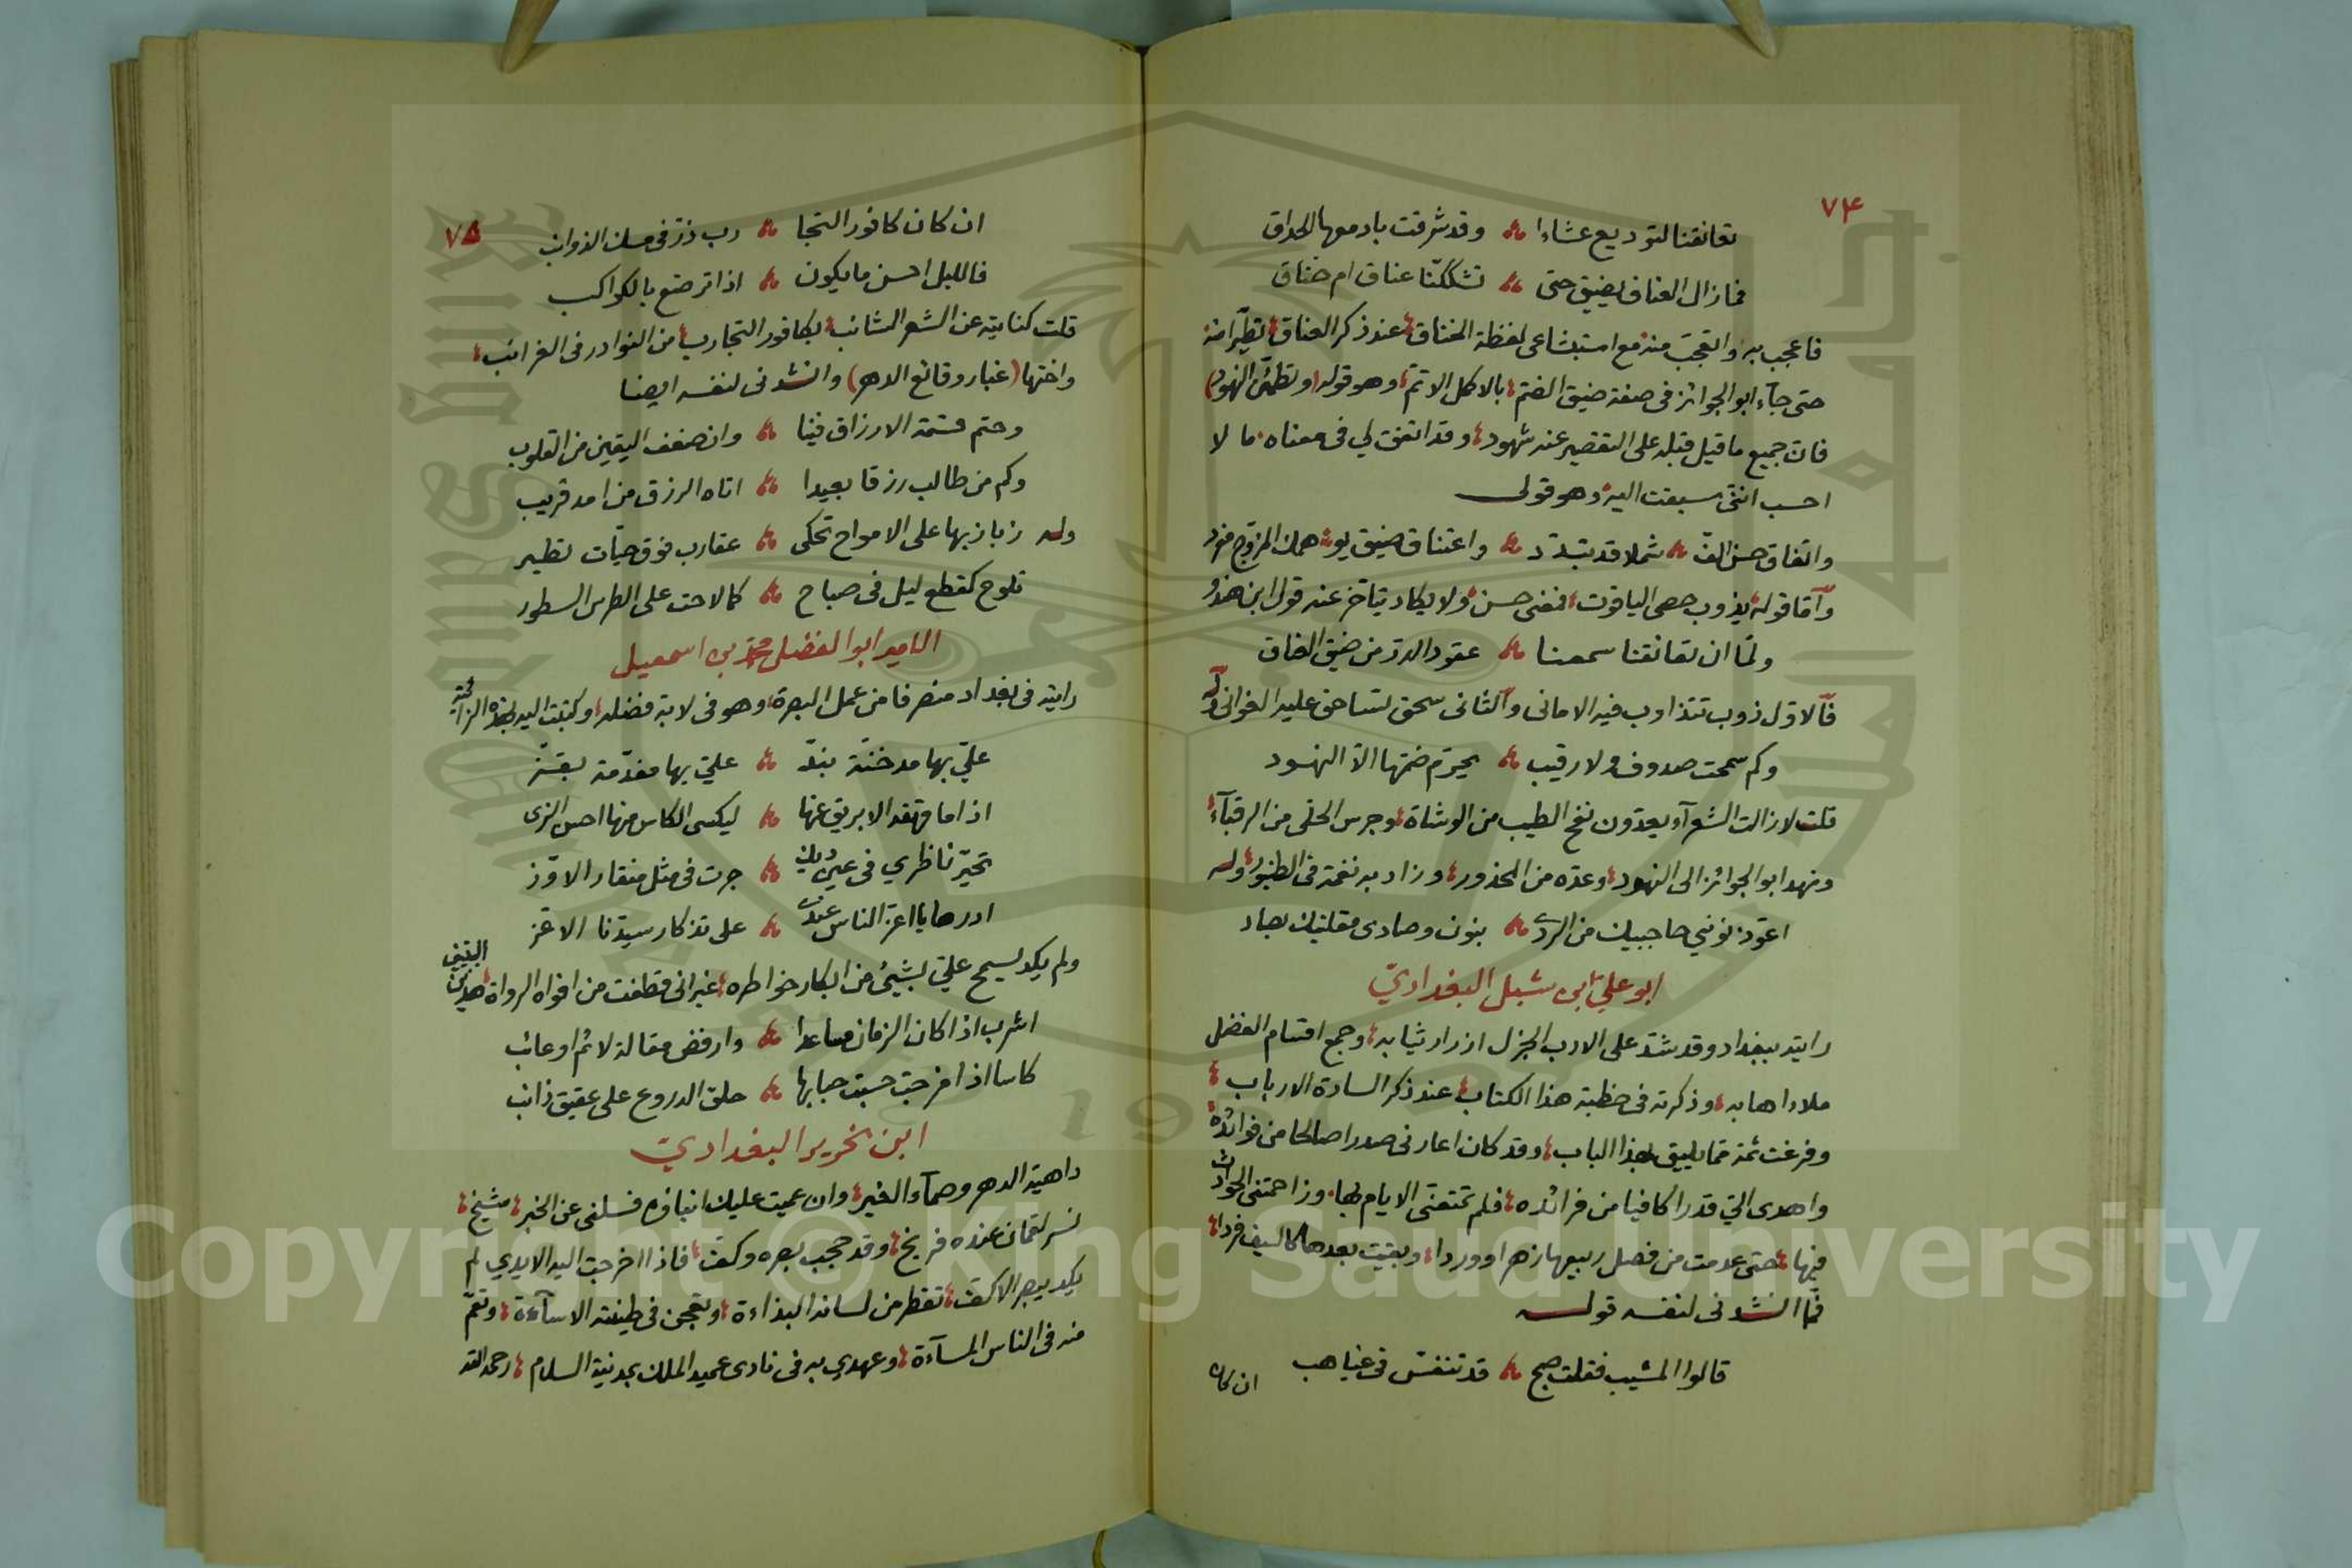 ٧٤
تعانقنا لتوديع عشاءا وقد شرقت بادمعها الحداق
فما زال العناق يضيق حتى تشككنا عناق ام خناق
فاعجب به والتعجب منه مع استبشاعى لفظة الخناق عند ذكر العناق تطيرا منه
حتى جاء ابو الجوائز فى صفة ضيق الضم بالاكمل الاتم وهو قوله (وتطمئن النهود)
فان جميع ما قيل قبله على التقصير عنه شهود وقد اتفق لي فى معناه ما لا
احسب اننى سبقت اليه وهو قولى
واتفاق حسن الف شملا قد تبدد واعتناق ضيق يو همك المزوج مفرد
وأما قوله يذوب حصى الياقوت فمعنى حسن ولا يكاد يتأخر عنه قول ابن هندو
ولما ان تعانقنا سمعنا عقود الدر من ضيق العناق
فالاول ذوب تتذاوب فيه الامانى والثانى سحق تتساحق عليه الغوانى وله
وكم سمحت صدوف ولا رقيب يحرم ضمها الا النهود
قلت لا زالت الشعرآء يعدون نفح الطيب من الوشاة وجرس الحلى من الرقبآء
ونهد ابو الجوائز الى النهود وعده من المحذور وزاد به نغمة فى الطنبور وله
اعوذ نونى حاجبيك من الردى بنون وصادى مقلتيك بصاد
ابو علي ابن شبل البغدادي
رايته ببغداد وقد شد على الادب الجزل ازرار ثيابه وجمع اقسام الفضل
ملاء اهابه وذكرته فى خطبة هذا الكتاب عند ذكر السادة الارباب
وفرغت ثمة مما يليق بهذا الباب وقد كان اعارنى صدرا صالحا من فوائده
واهدى الي قدرا كافيا من فرائده فلم تمتعنى الايام بها وزاحمتنى الحوادث
فيها حتى عدمت من فصل ربيعها زهرا ووردا وبقيت بعدها كالسيف فردا
فمما انشدنى لنفسه قوله
قالوا المشيب فقلت صبح قد تنفس فى غياهب
ان كان
٧٥
ان كان كافور التجا رب ذر فى مسك الذوائب
فالليل احسن ما يكون اذا ترصع بالكواكب
قلت كنايته عن الشعر الشائب بكافور التجارب من النوادر فى الغرائب
واختها (غبار وقائع الدهر) وانشدنى لنفسه ايضا
وحتم قسمة الارزاق فينا وان ضعف اليقين من القلوب
وكم من طالب رزقا بعيدا اتاه الرزق من امد قريب
وله زبازبها على الامواج تحكى عقارب فوق حيات تطير
تلوح كقطع ليل فى صباح كما لاحت على الطرس السطور
الامير ابو الفضل محمد بن اسمعيل
رايته فى بغداد منصرفا من عمل البصرة وهو فى لابة فضله وكتبت اليه بهذه الزائية
علي بها مدخنة بند علي بها مفدمة بقز
اذا ما قهقه الابريق عنها ليكسى الكاس منها احسن الزى
تحير ناظري فى عين ديك جرت فى مثل منقار الاوز
ادرها يا اعز الناس عندى على تذكار سيدنا الاعز
ولم يكد يسمح علي بشيئ من ابكار خواطره غير انى قطفت من افواه الرواة هذين البيتين
اشرب اذا كان الزمان مساعدا وارفض مقالة لائم او عائب
كاسا اذا مزجت حسبت حبابها حلق الدروع على عقيق ذائب
ابن نحرير البغدادي
داهية الدهر وصمآء الغير وان عميت عليك انباؤه فسلنى عن الخبر شيخ
نسر لقمان عنده فريخ وقد حجب بصره وكف فاذا اخرجت اليه الايدي لم
يكد يبصر الاكف تقطر من لسانه البذاءة وتعجن فى طينته الاسآءة وتعم
منه فى الناس المسآءة وعهدي به فى نادى عميد الملك بمدينة السلام رحمه الله
Copyright © King Saud University